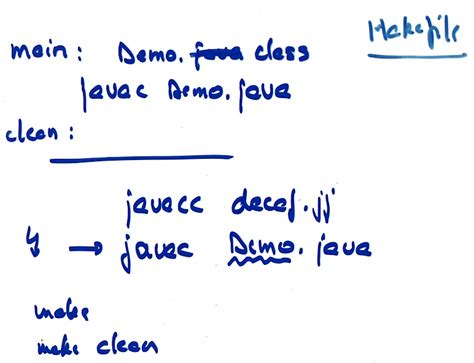 Makefile
main: Demo. java class
javac Demo.java
clean:
javacc decaf.jj
↳ → javac Demo.java
make
make clean